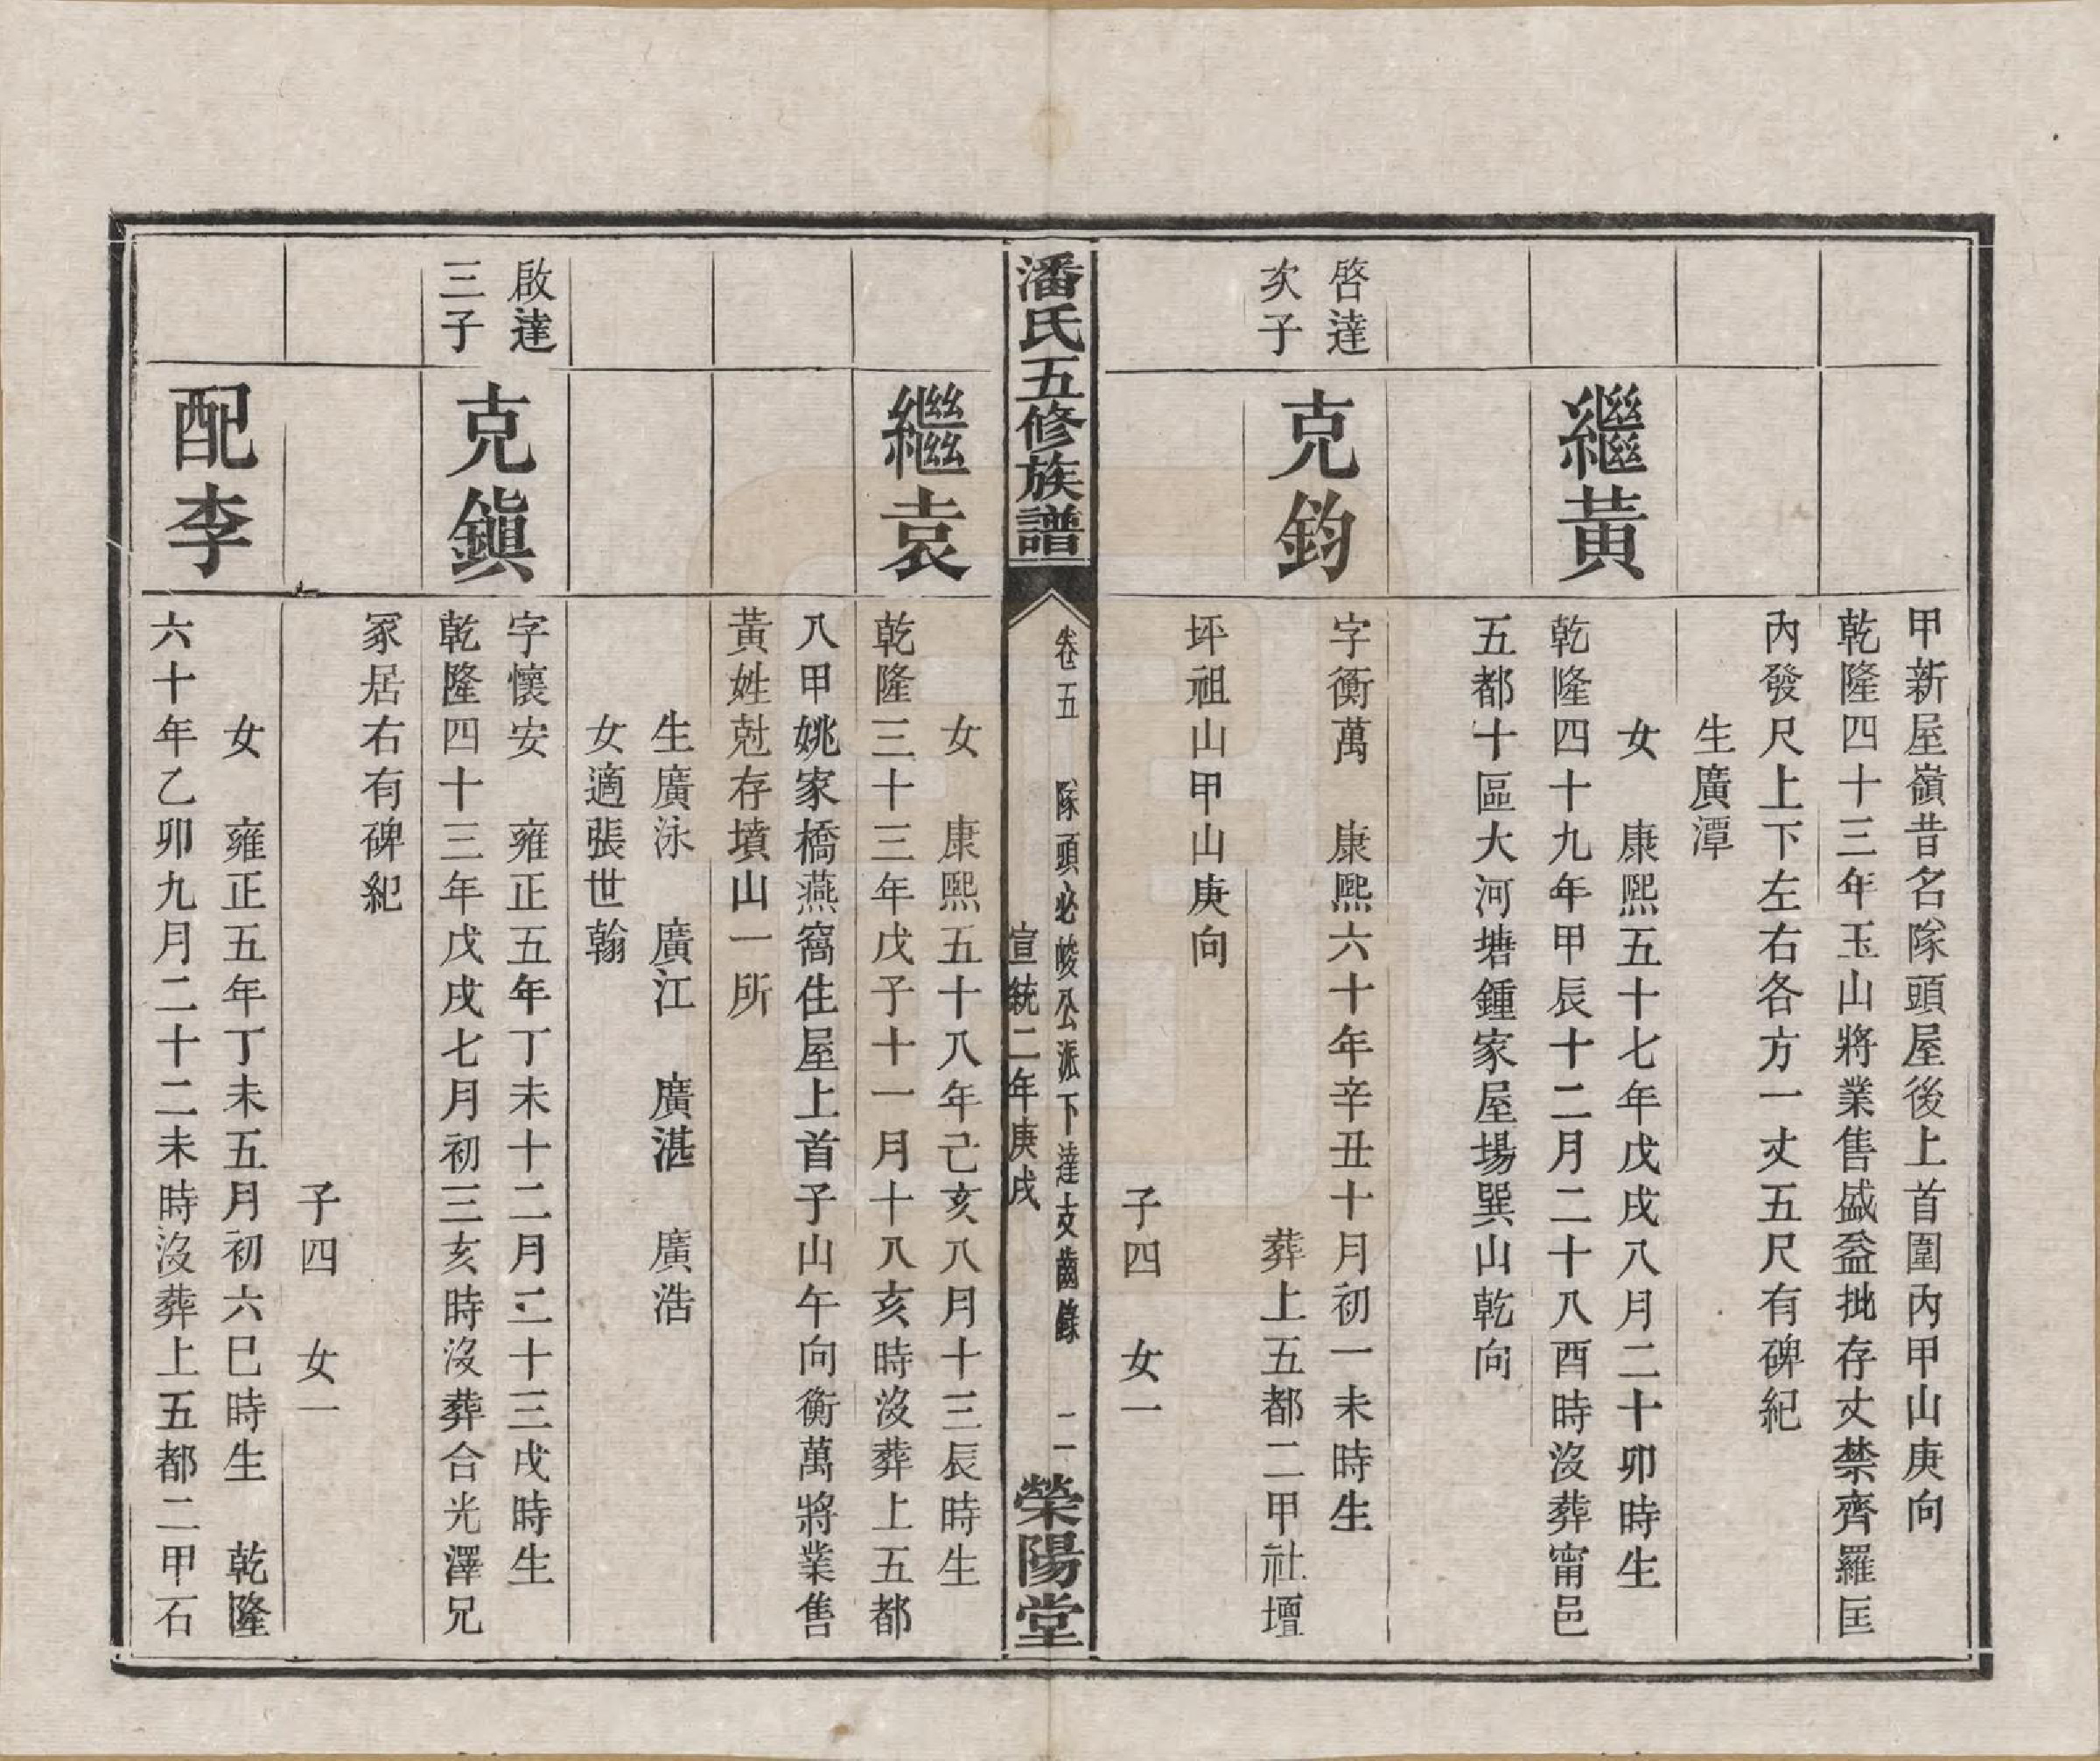 甲新屋嶺昔名隊頭屋後上首圍內甲山庚向
乾隆四十三年玉山將業售盛益批存丈禁齊羅匡
內發尺上下左右各方一丈五尺有碑紀
生廣潭
繼黃
女　康熙五十七年戊戌八月二十卯時生
乾隆四十九年甲辰十二月二十八酉時沒葬甯邑
五都十區大河塘鍾家屋場巽山乾向
啓達
次子
克鈞
字衡萬　康熙六十年辛丑十月初一未時生
葬上五都二甲社壇
坪祖山甲山庚向
子四　女一
潘氏五修族譜
卷五　隊頭必峻公派下達支齒錄　二一
宣統二年庚戌
榮陽堂
繼袁
女　康熙五十八年己亥八月十三辰時生
乾隆三十三年戊子十一月十八亥時沒葬上五都
八甲姚家橋燕窩住屋上首子山午向衡萬將業售
黃姓尅存墳山一所
生廣泳　廣江　廣湛　廣浩
女適張世翰
啟達
三子
克鎭
字懷安　雍正五年丁未十二月二十三戌時生
乾隆四十三年戊戌七月初三亥時沒葬合光澤兄
冢居右有碑紀
子四　女一
配李
女　雍正五年丁未五月初六巳時生　乾隆
六十年乙卯九月二十二未時沒葬上五都二甲石